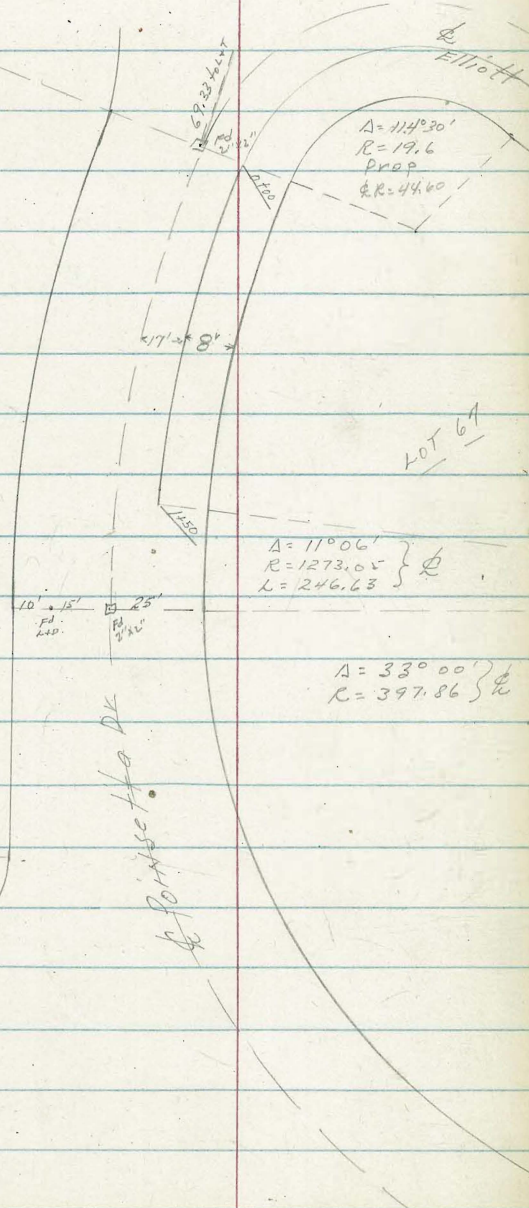 ℄
Elliott
69.33 to L+T
Fd
2"x2"
Δ=114°30'
R=19.6
Prop
℄R=44.60
0+00
17' 8'
LOT 67
1+50
Δ=11°06'
R=1273.05 ℄
L=246.63
10' 15' 25'
Fd
Fd
2"x2"
Δ=33°00' ℄
R=397.86
℄ Poinsettia Dr